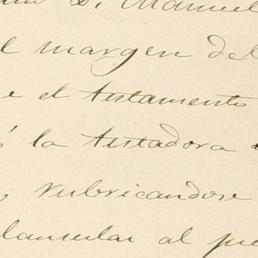 D. Manuel
l margen del
e el testamento
ó la testadora
, rubricandose
clausular al pe